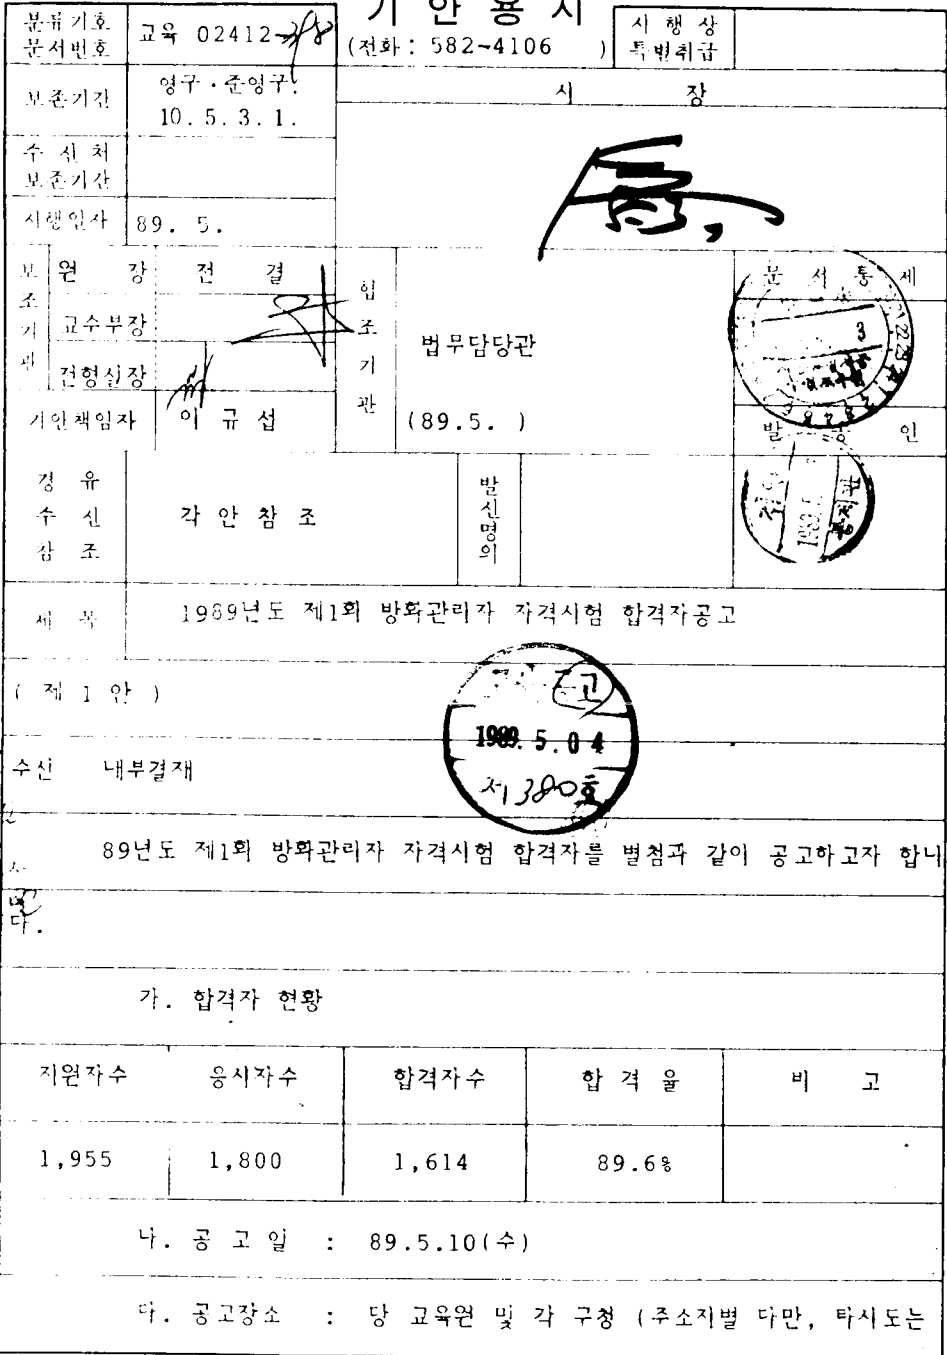 기 안 용 지
분류기호
문서번호
교육 02412-
(전화 : 582-4106 )
시 행 상
특별취급
보존기간
영구 · 준영구.
10. 5. 3. 1.
시 장
수 신 처
보존기간
시행일자
89. 5.
보조기관
원 장
전 결
교수부장
전형실장
기안책임자
이 규 섭
협조기관
법무담당관
(89.5. )
문 서 통 제
발 송 인
경 유
수 신
참 조
각 안 참 조
발신명의
제 목
1989년도 제1회 방화관리자 자격시험 합격자공고
( 제 1 안 )
고
1989. 5. 0 4
제 380호
수신 내부결재
89년도 제1회 방화관리자 자격시험 합격자를 별첨과 같이 공고하고자 합니
다.
가. 합격자 현황
지원자수 응시자수 합격자수 합 격 율 비 고
1,955 1,800 1,614 89.6%
나. 공 고 일 : 89.5.10(수)
다. 공고장소 : 당 교육원 및 각 구청 (주소지별 다만, 타시도는